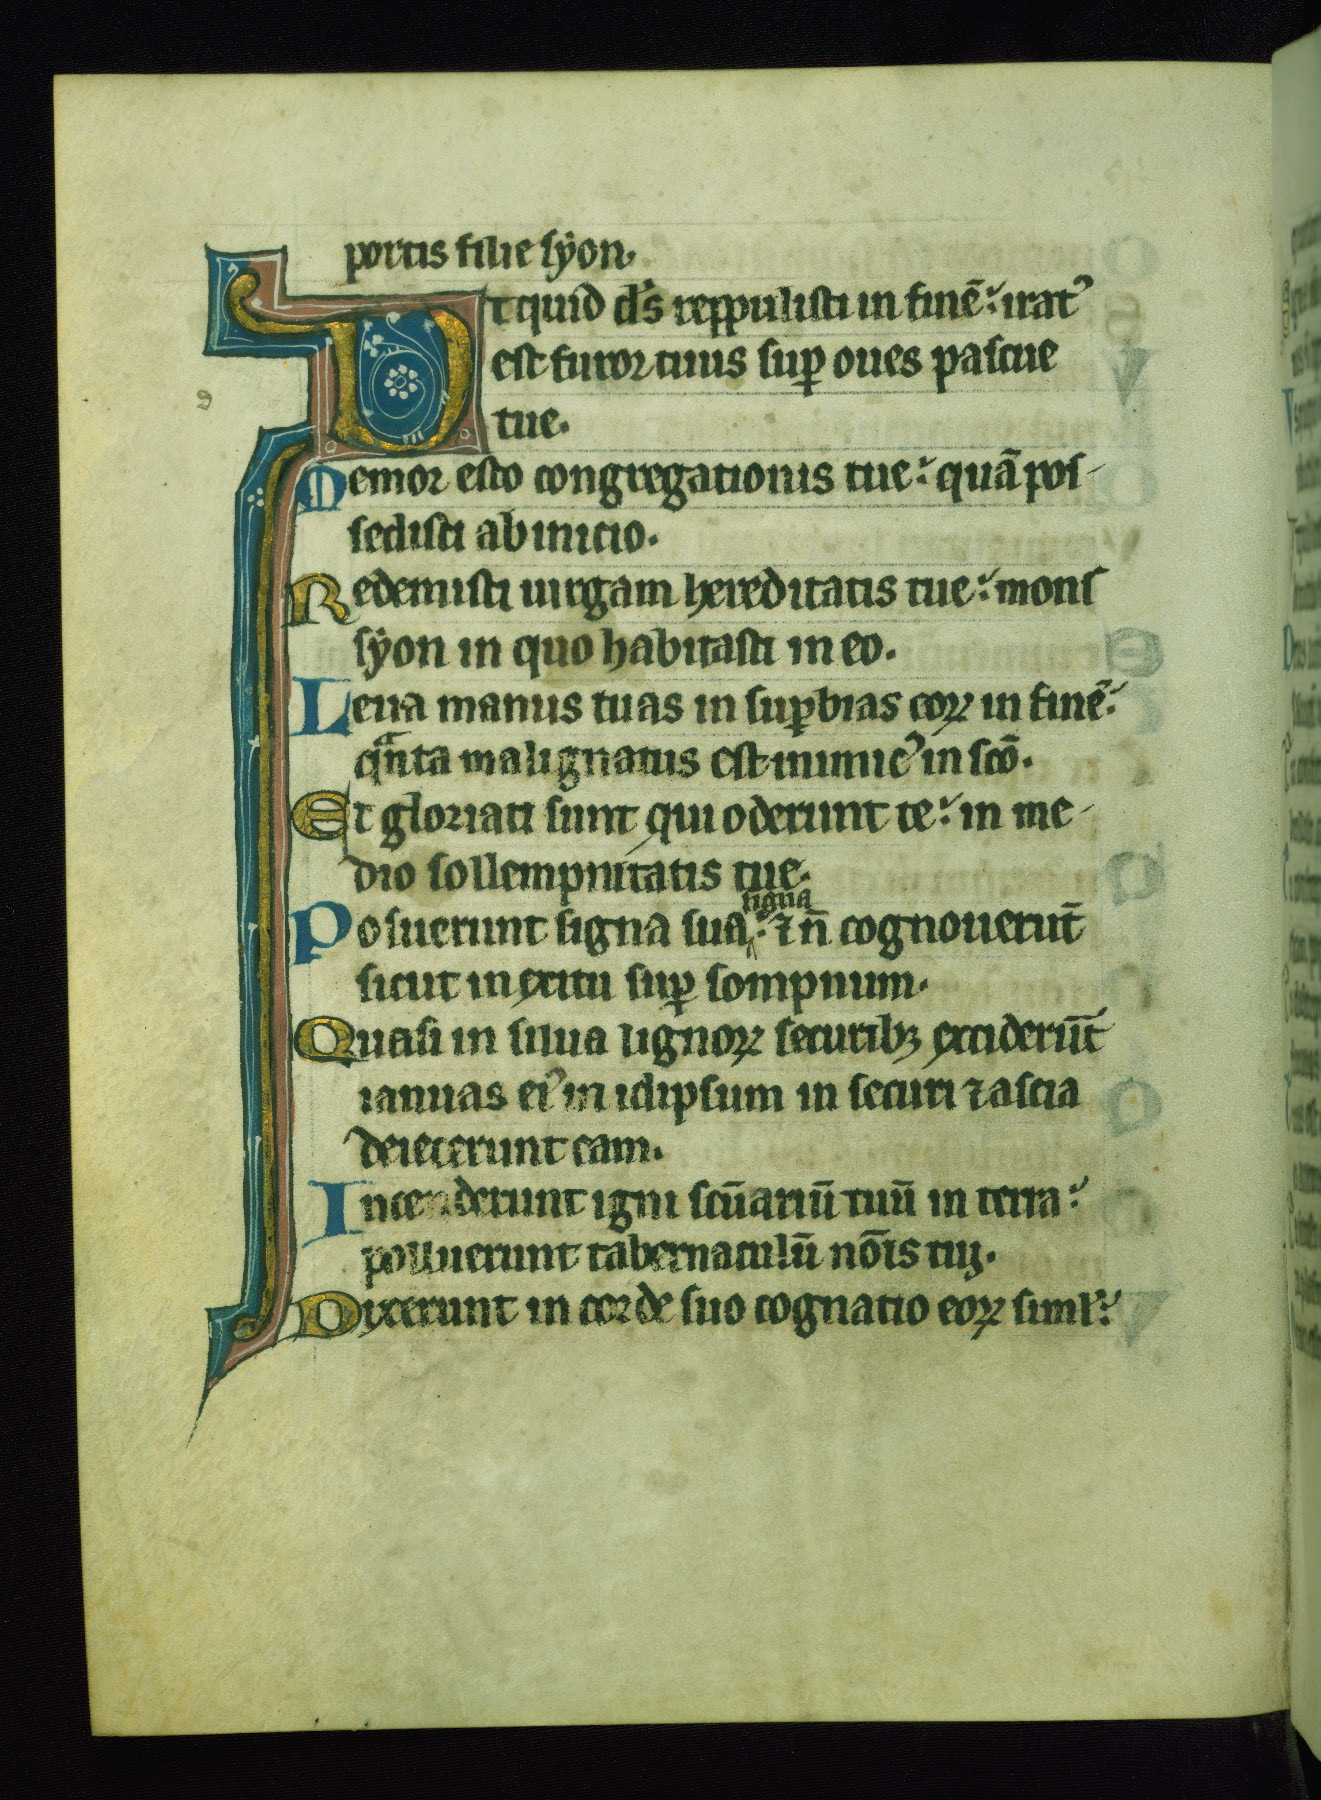 portis filie syon.
Ut quid d̄s reppulisti in finē: irat᾽
est furor tuus sup̲ oues pascue
tue.
Memor esto congregationis tue: quā pos-
sedisti ab inicio.
Redemisti uirgam hereditatis tue: mons
syon in quo habitasti in eo.
Leua manus tuas in sup̲bias eoꝝ in finē:
qͣnta malignatus est inimic᾽ in sc̄o.
Et gloriati sunt qui oderunt te: in me-
dio sollempnitatis tue.
signa
Posuerunt signa sua: ⁊ n̄ cognouerūt
sicut in exitu sup̲ sompnum.
Quasi in silua lignoꝝ securibꝫ exciderūt
ianuas ei᾽ in idipsum in securi ⁊ ascia
deiecerunt eam.
Incenderunt igni sc̄uariū tuū in terra:
polluerunt tabernaculū nōis tui.
Dixerunt in corde suo cognatio eoꝝ simł: